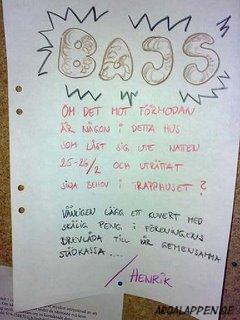 BAJS
OM DET MOT FÖRMODAN
ÄR NÅGON I DETTA HUS
SOM LÅST SIG UTE NATEN
25-26/2 OCH UTRÄTTAT
SINA BEHOV I TRAPPHUSET?
VÄNLIGEN LÄGG ETT KUVERT MED
SKÄLIG PENG I FÖRENINGENS
BREVLÅDA TILL VÅR GEMENSAMMA
STÄDKASSA....
/HENRIK
ARGALAPPEN.SE